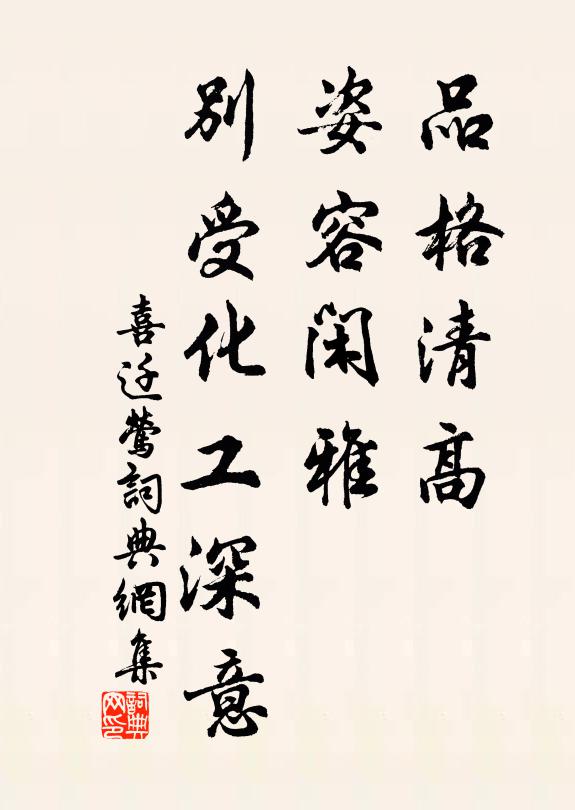 品格清高
姿容闲雅
别受化工深意
喜迁莺詞典網集
詞典网印